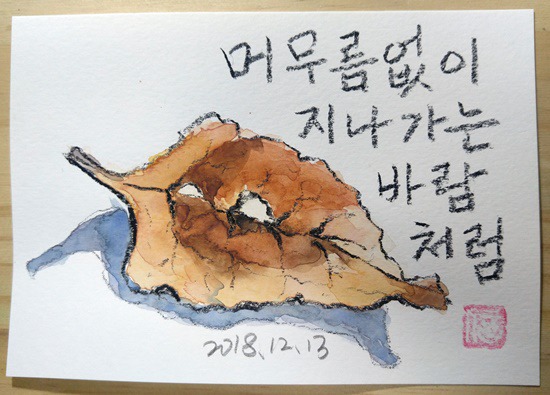 머무름없이
지나가는
바람
처럼
2018.12.13